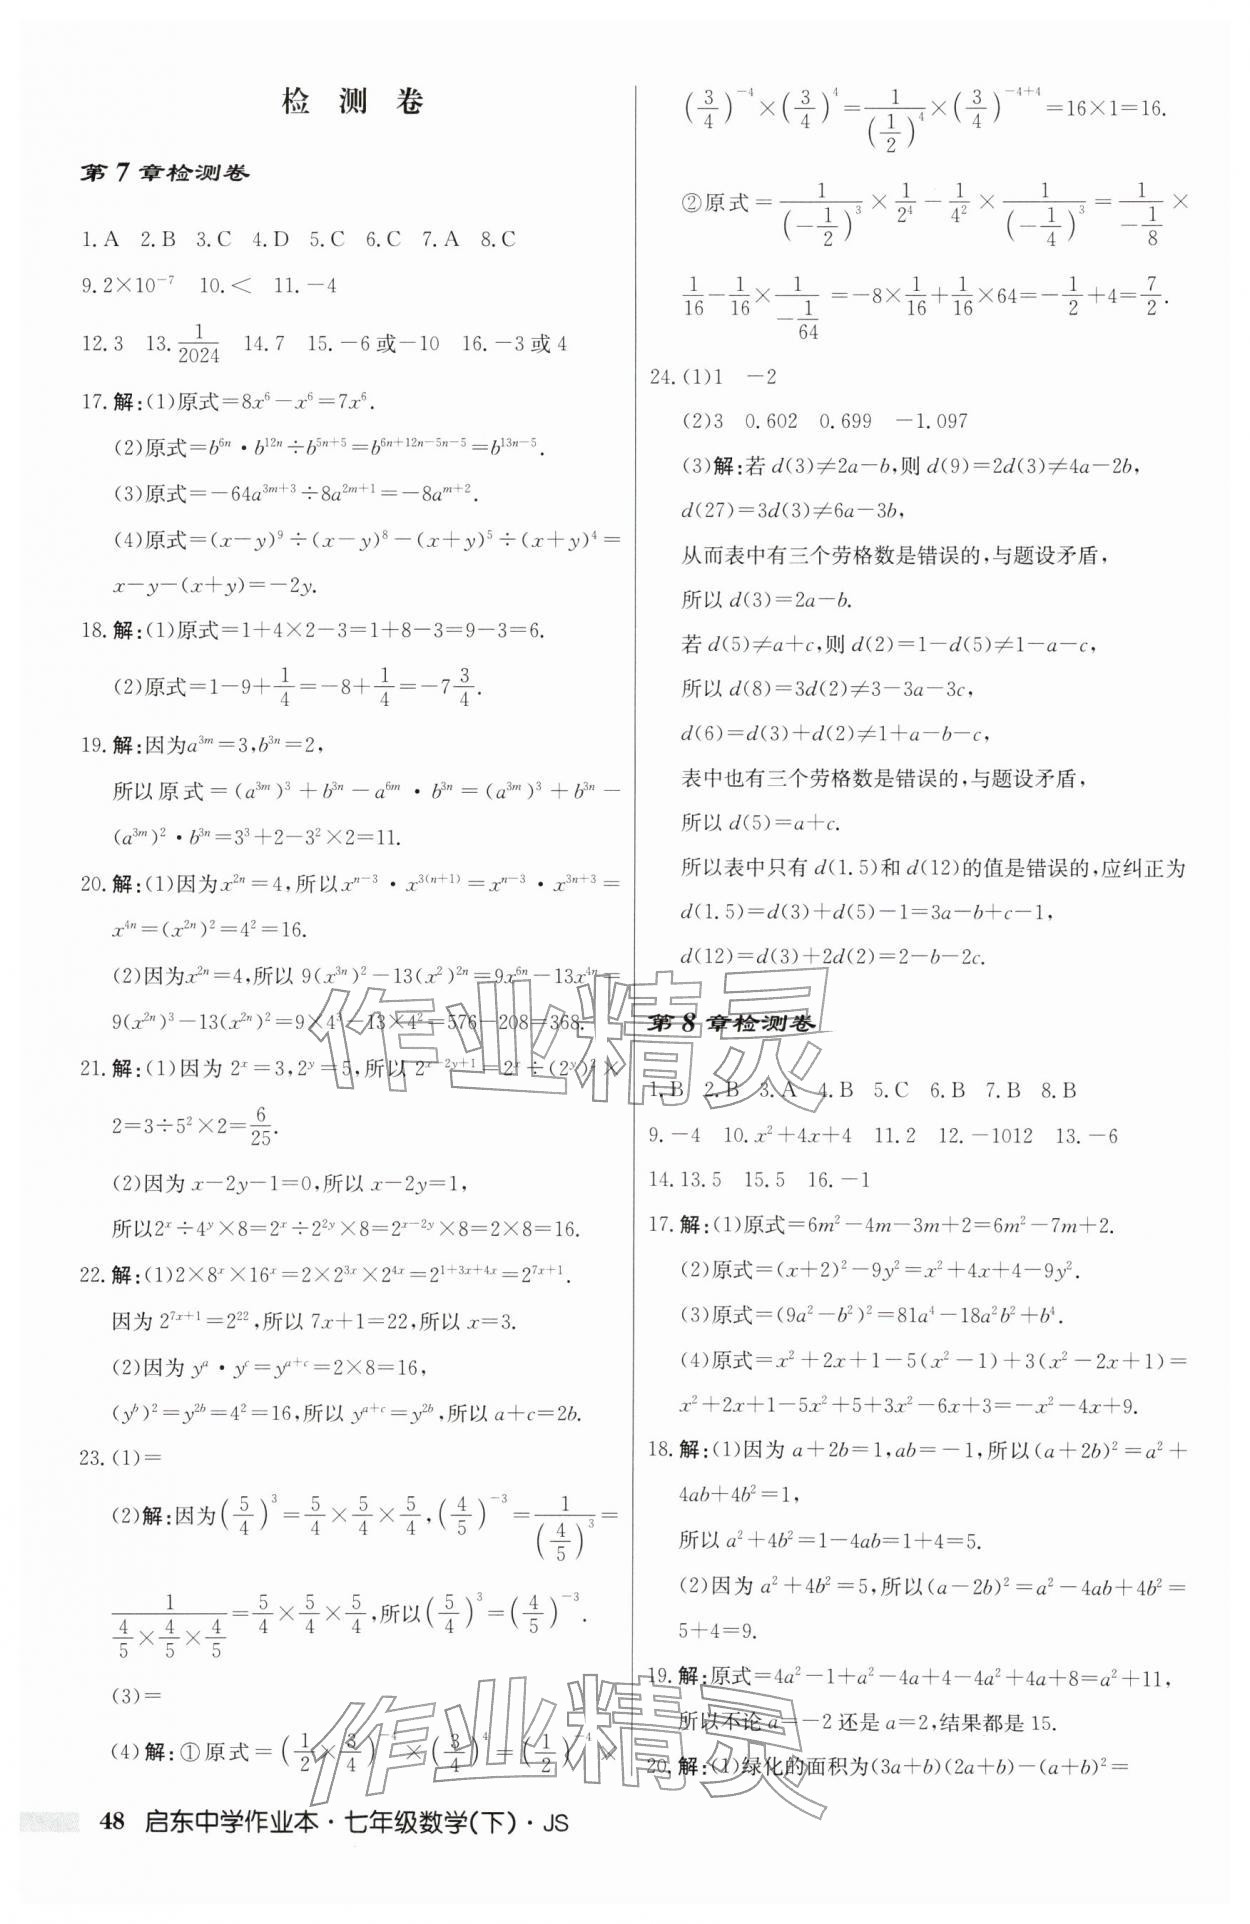 检 测 卷
第 7 章检测卷
1. A  2. B  3. C  4. D  5. C  6. C  7. A  8. C
9. 2×10⁻⁷  10. <  11. -4
12. 3  13. 1/2024  14. 7  15. -6或-10  16. -3或4
17. 解:(1)原式=8x⁶-x⁶=7x⁶.
(2)原式=b^{6n}·b^{12n}÷b^{5n+5}=b^{6n+12n-5n-5}=b^{13n-5}.
(3)原式=-64a^{3m+3}÷8a^{2m+1}=-8a^{m+2}.
(4)原式=(x-y)⁹÷(x-y)⁸-(x+y)⁵÷(x+y)⁴=
x-y-(x+y)=-2y.
18. 解:(1)原式=1+4×2-3=1+8-3=9-3=6.
(2)原式=1-9+1/4=-8+1/4=-7 3/4.
19. 解:因为a^{3m}=3,b^{3n}=2,
所以原式=(a^{3m})³+b^{3n}-a^{6m}·b^{3n}=(a^{3m})³+b^{3n}-
(a^{3m})²·b^{3n}=3³+2-3²×2=11.
20. 解:(1)因为x^{2n}=4,所以x^{n-3}·x^{3(n+1)}=x^{n-3}·x^{3n+3}=
x^{4n}=(x^{2n})²=4²=16.
(2)因为x^{2n}=4,所以 9(x^{3n})²-13(x²)^{2n}=9x^{6n}-13x^{4n}=
9(x^{2n})³-13(x^{2n})²=9×4³-13×4²=576-208=368.
21. 解:(1)因为 2^x=3,2^y=5,所以 2^{x-2y+1}=2^x÷(2^y)²×
2=3÷5²×2=6/25.
(2)因为 x-2y-1=0,所以 x-2y=1,
所以2^x÷4^y×8=2^x÷2^{2y}×8=2^{x-2y}×8=2×8=16.
22. 解:(1)2×8^x×16^x=2×2^{3x}×2^{4x}=2^{1+3x+4x}=2^{7x+1}.
因为 2^{7x+1}=2^{22},所以 7x+1=22,所以 x=3.
(2)因为 y^a·y^c=y^{a+c}=2×8=16,
(y^b)²=y^{2b}=4²=16,所以 y^{a+c}=y^{2b},所以 a+c=2b.
23. (1)=
(2)解:因为(5/4)³=5/4×5/4×5/4,(4/5)⁻³=1/(4/5)³=
1/(4/5×4/5×4/5)=5/4×5/4×5/4,所以(5/4)³=(4/5)⁻³.
(3)=
(4)解:①原式=(1/2×3/4)⁻⁴×(3/4)⁴=(1/2)⁻⁴×
48 启东中学作业本·七年级数学(下)·JS
(3/4)⁻⁴×(3/4)⁴=1/(1/2)⁴×(3/4)^{-4+4}=16×1=16.
②原式=1/(-1/2)³×1/2⁴-1/4²×1/(-1/4)³=1/(-1/8)×
1/16-1/16×1/(-1/64)=-8×1/16+1/16×64=-1/2+4=7/2.
24. (1)1  -2
(2)3  0.602  0.699  -1.097
(3)解:若 d(3)≠2a-b,则 d(9)=2d(3)≠4a-2b,
d(27)=3d(3)≠6a-3b,
从而表中有三个劳格数是错误的,与题设矛盾,
所以 d(3)=2a-b.
若 d(5)≠a+c,则 d(2)=1-d(5)≠1-a-c,
所以 d(8)=3d(2)≠3-3a-3c,
d(6)=d(3)+d(2)≠1+a-b-c,
表中也有三个劳格数是错误的,与题设矛盾,
所以 d(5)=a+c.
所以表中只有 d(1.5)和 d(12)的值是错误的,应纠正为
d(1.5)=d(3)+d(5)-1=3a-b+c-1,
d(12)=d(3)+2d(2)=2-b-2c.
第 8 章检测卷
1. B  2. B  3. A  4. B  5. C  6. B  7. B  8. B
9. -4  10. x²+4x+4  11. 2  12. -1012  13. -6
14. 13.5  15. 5  16. -1
17. 解:(1)原式=6m²-4m-3m+2=6m²-7m+2.
(2)原式=(x+2)²-9y²=x²+4x+4-9y².
(3)原式=(9a²-b²)²=81a⁴-18a²b²+b⁴.
(4)原式=x²+2x+1-5(x²-1)+3(x²-2x+1)=
x²+2x+1-5x²+5+3x²-6x+3=-x²-4x+9.
18. 解:(1)因为 a+2b=1,ab=-1,所以(a+2b)²=a²+
4ab+4b²=1,
所以 a²+4b²=1-4ab=1+4=5.
(2)因为 a²+4b²=5,所以(a-2b)²=a²-4ab+4b²=
5+4=9.
19. 解:原式=4a²-1+a²-4a+4-4a²+4a+8=a²+11,
所以不论a=-2还是a=2,结果都是15.
20. 解:(1)绿化的面积为(3a+b)(2a+b)-(a+b)²=
作业精灵
作业精灵